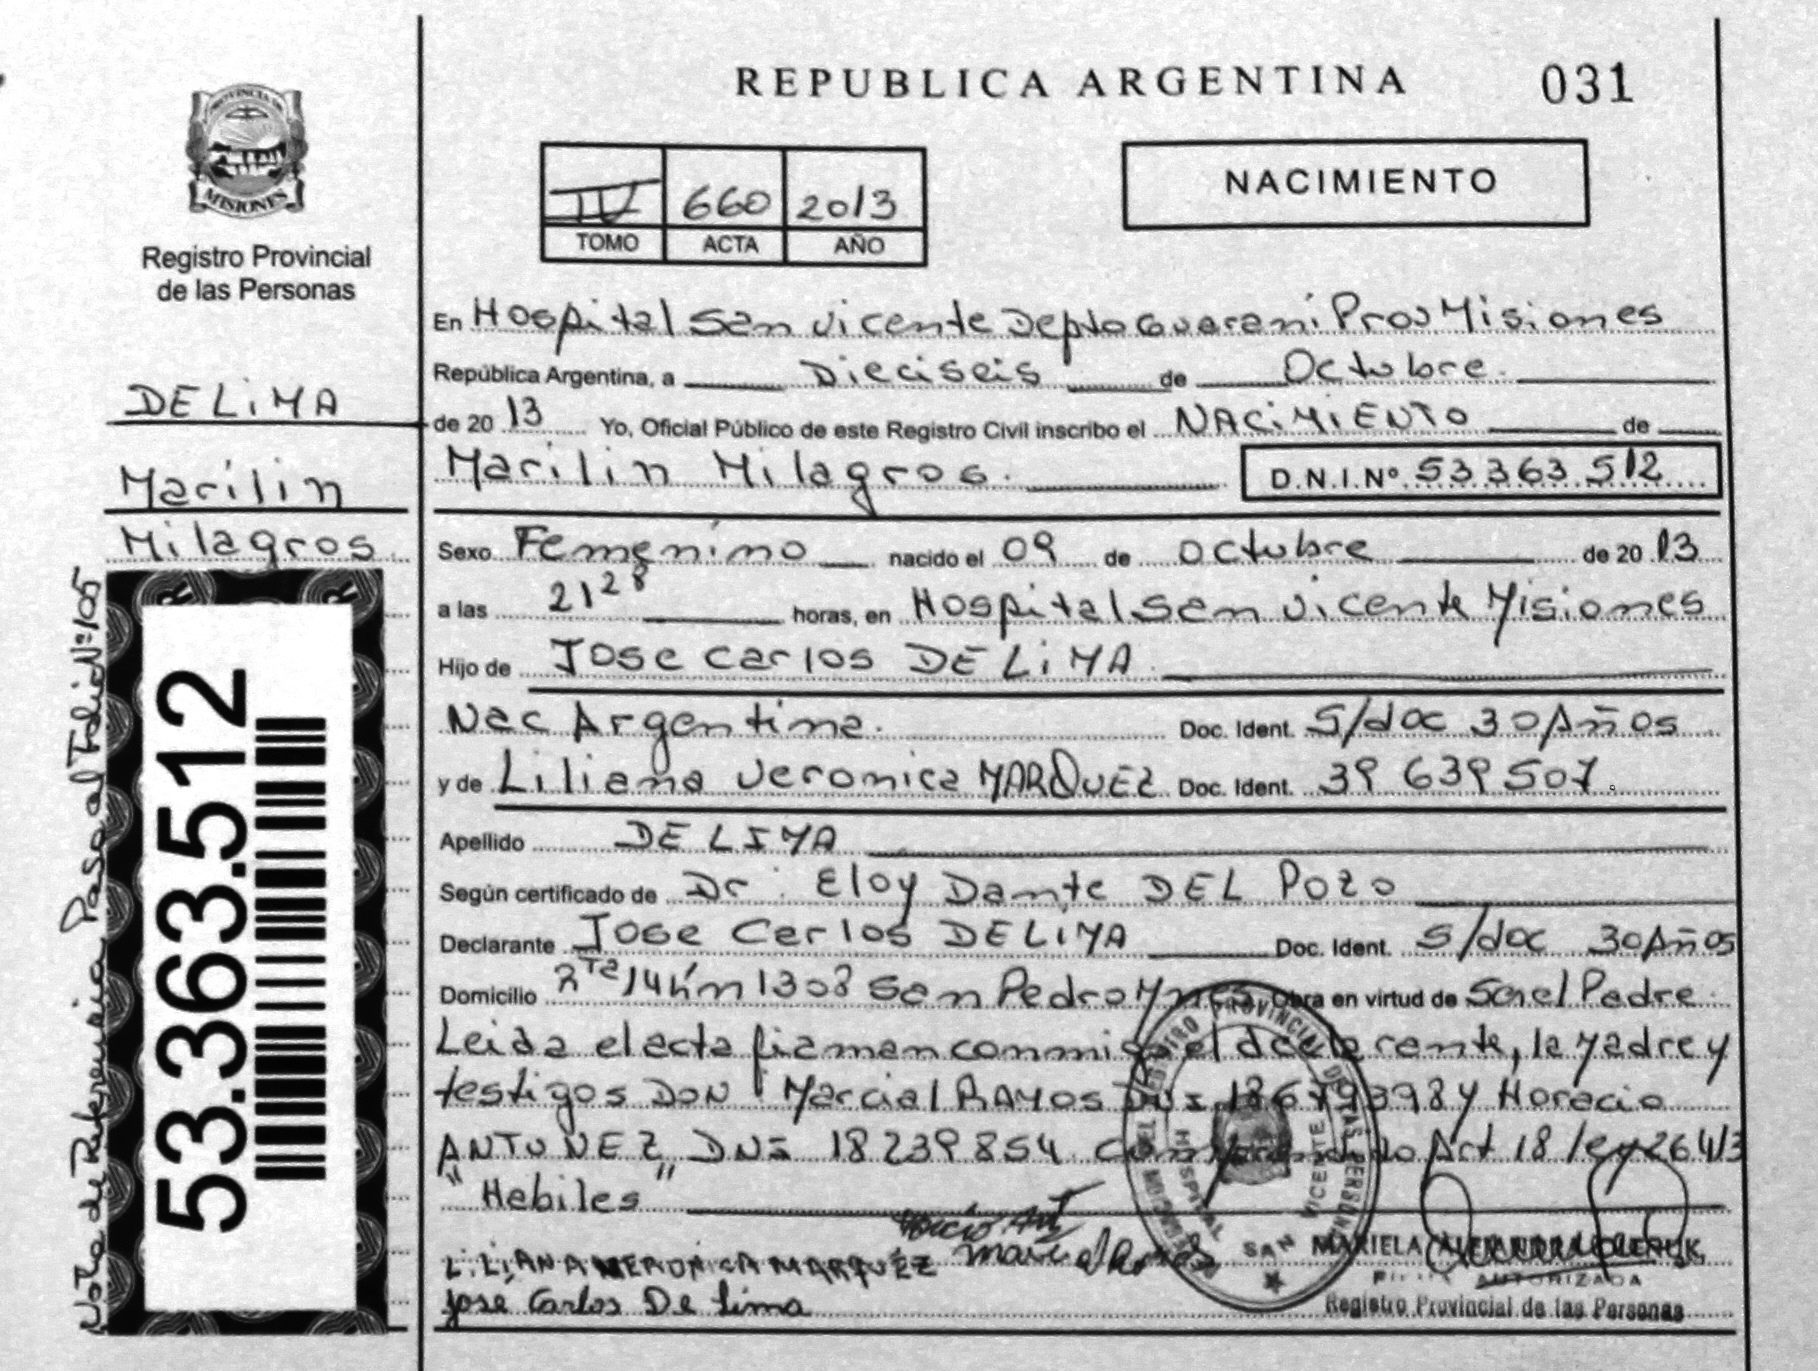 REPUBLICA ARGENTINA
031
PROVINCIA DE
MISIONES
Registro Provincial
de las Personas
IV 660 2013
TOMO ACTA AÑO
NACIMIENTO
DE LiMA
Marilin
Milagros
Nota de Referencia Pasa al Folio Nº 105
53.363.512
En Hospital San Vicente Depto Guarani Prov Misiones
República Argentina, a Dieciseis de Octubre
de 2013 Yo, Oficial Público de este Registro Civil inscribo el NACiMiENTO de
Marilin Milagros. D.N.I.Nº 53 363 512
Sexo Femenino nacido el 09 de octubre de 2013
a las 21 28 horas, en Hospital San Vicente Misiones
Hijo de Jose Carlos DE LiMA
Nac Argentina. Doc. Ident. S/doc 30 Años
y de Liliana Veronica MARQUEZ Doc. Ident. 39 639 507.
Apellido DE LIMA
Según certificado de Dr. Eloy Dante DEL POZO
Declarante Jose Carlos DE LiMA Doc. Ident. S/doc 30 Años
Domicilio Rta 14 km 1308 San Pedro Mnes Obra en virtud de Ser el Padre.
Leida el acta firman conmigo el declarante, la Madre y
testigos DON Marcial RAMOS DNI 18679398 y Horacio
ANTUNEZ DNI 18239854 Art 18 ley 26413
"Habiles"
LiLiANA VERONiCA MARQUEZ
José Carlos De Lima
REGISTRO PROVINCIAL DE LAS PERSONAS
HOSPITAL SAN VICENTE
MISIONES
MARIELA
AUTORIZADA
Registro Provincial de las Personas